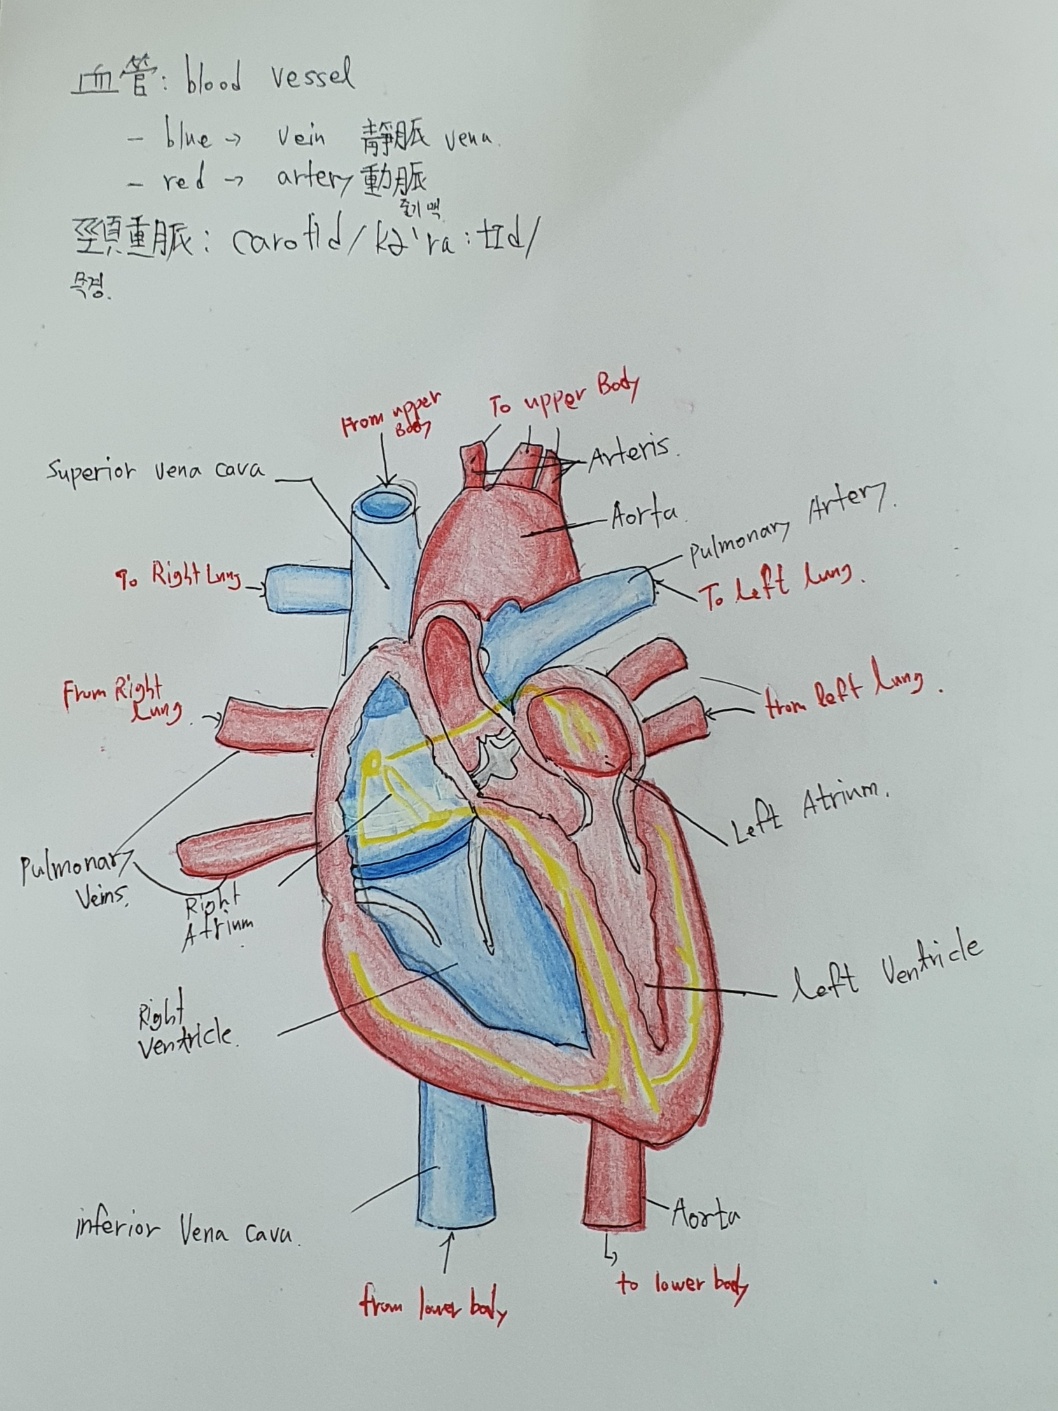 血管: blood vessel
- blue → vein 靜脈 vena.
- red → artery 動脈
줄기 맥
頸動脈: carotid /kə'ra:tɪd/
목경.
From upper
Body
To upper Body
Superior vena cava
Arteris.
Aorta.
Pulmonary Artery.
To Right Lung
To left lung.
From Right
Lung.
from left lung.
Left Atrium.
Pulmonary
Veins.
Right
Atrium
left Ventricle
Right
Ventricle.
inferior Vena cava.
Aorta
from lower body
to lower body